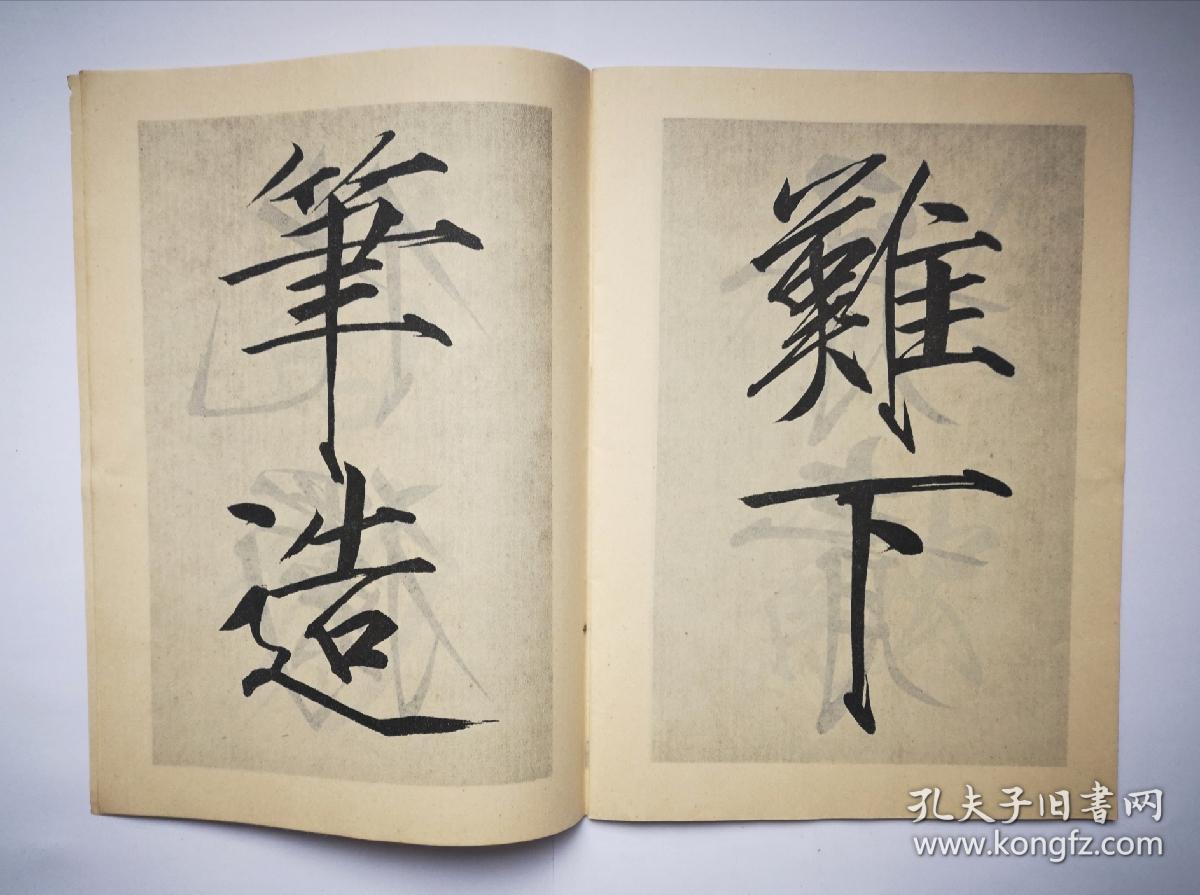 難下
筆造
孔夫子旧書网
www.kongfz.com